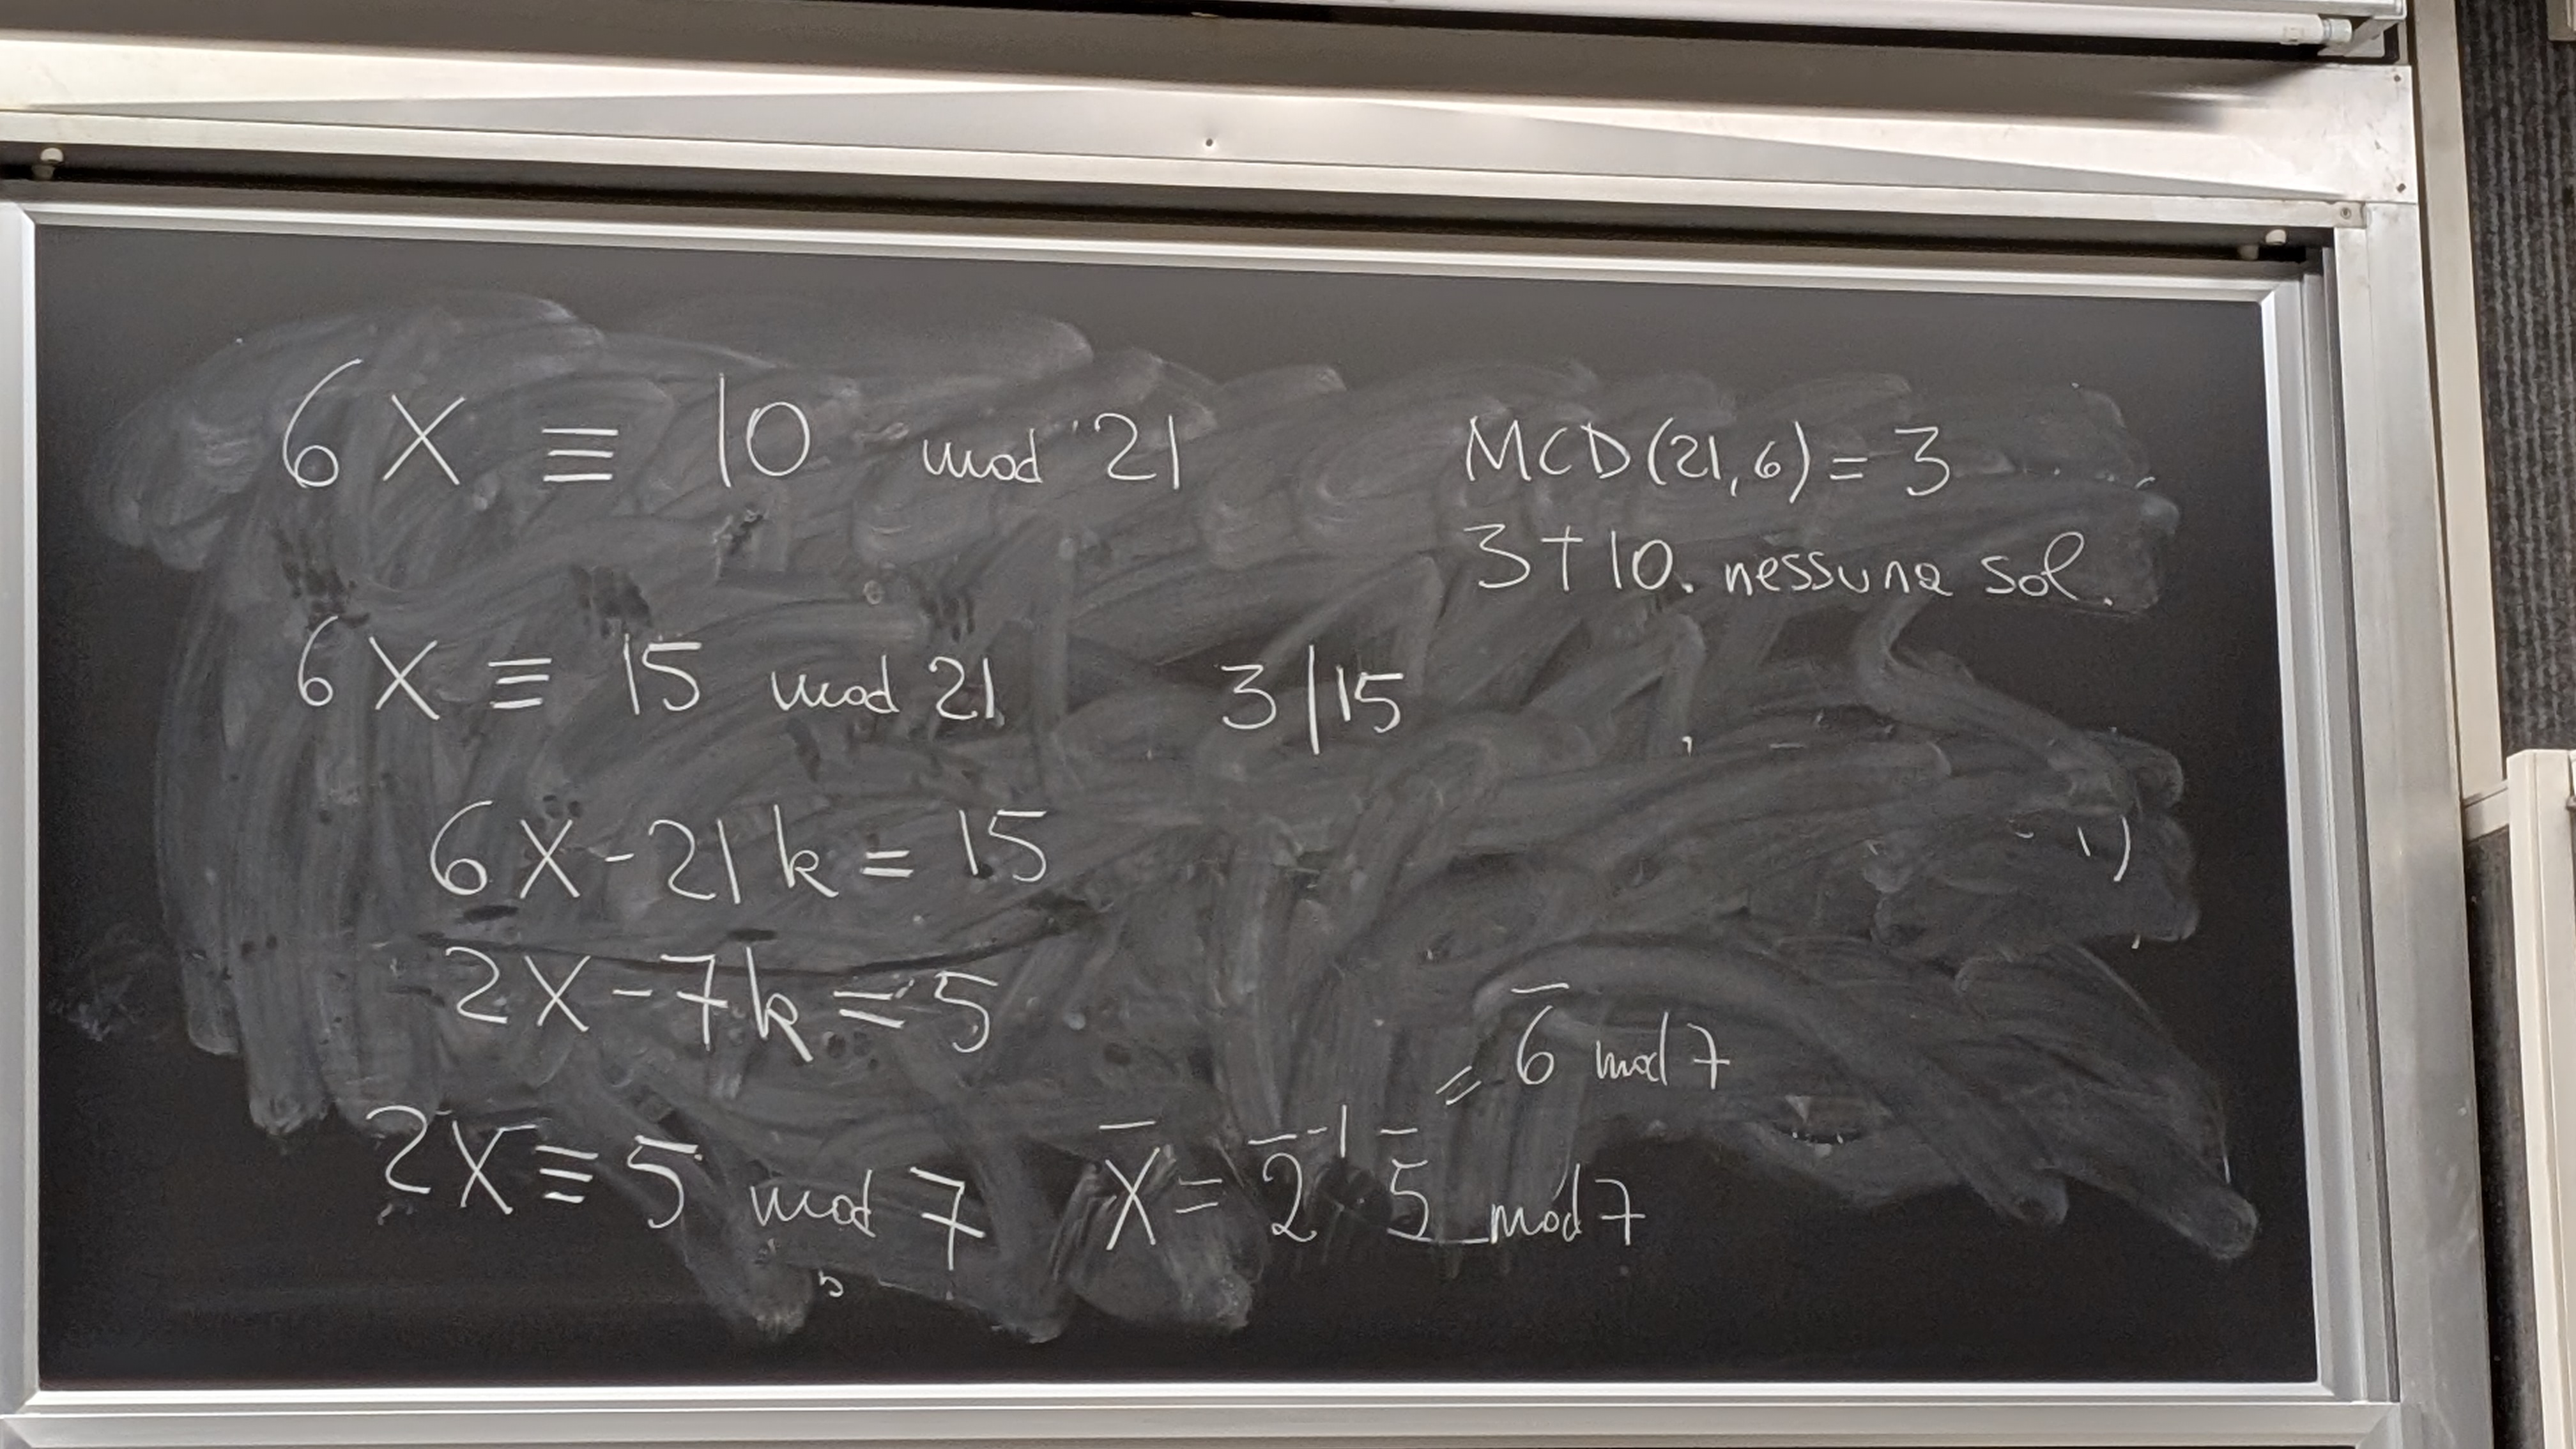 6X ≡ 10 mod 21 MCD(21,6) = 3
3∤10. nessuna sol.
6X ≡ 15 mod 21 3|15
6X - 21k = 15
2X - 7k = 5
= 6̄ mod 7
2X ≡ 5 mod 7 X̄ = 2̄⁻¹ 5̄ mod 7